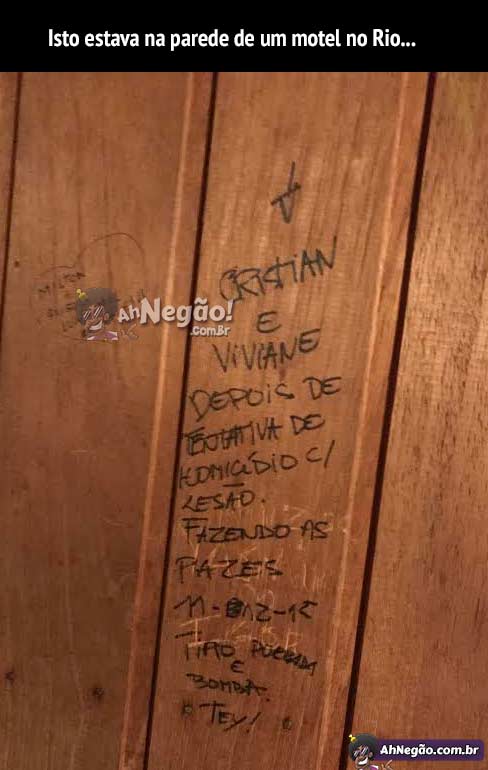 Isto estava na parede de um motel no Rio...
CRISTIAN
E
VIVIANE
DEPOIS DE
TENTATIVA DE
HOMICÍDIO C/
LESÃO.
FAZENDO AS
PAZES
TIRO
E
BOMBA.
TEY!
AhNegão!
.com.Br
AhNegão.com.br